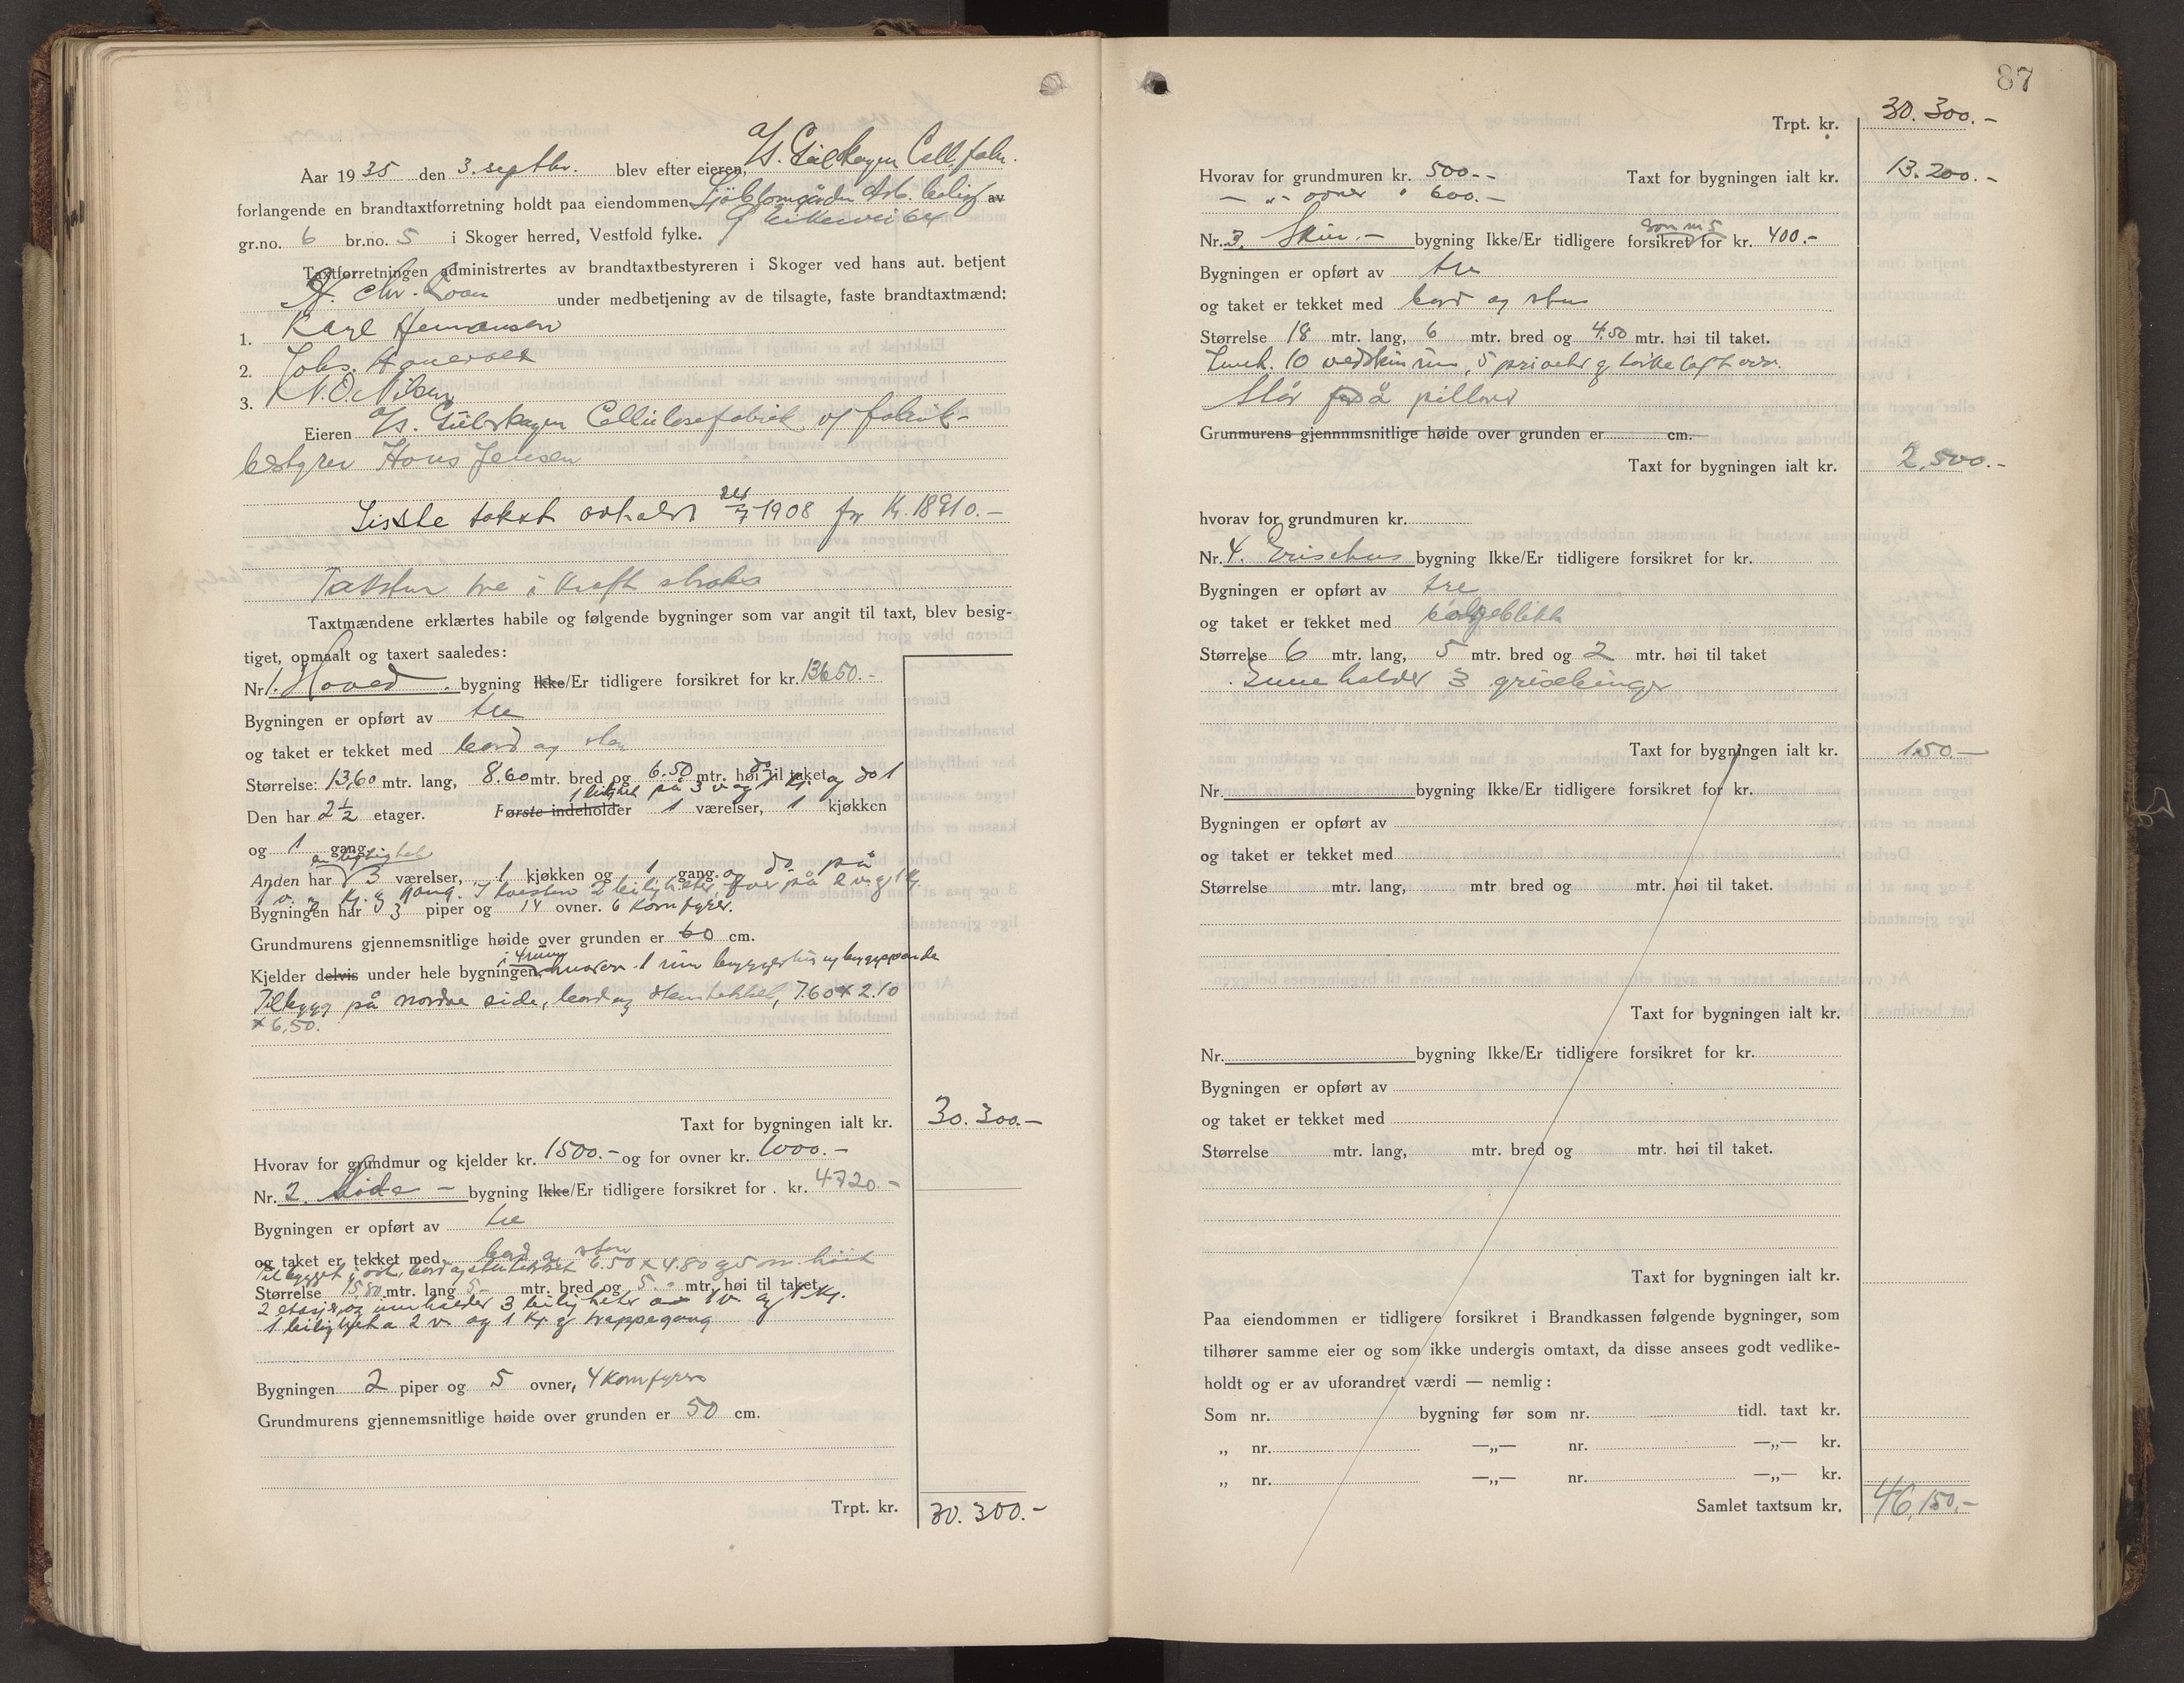 Aar 1935 den 3. septbr. blev efter eieren, A/S. Gulskogen Cell. fabr.
forlangende en brandtaxtforretning holdt paa eiendommen Sjöblomgården Arb. bolig av
gr.no. 6 br.no. 5 i Skoger herred, Vestfold fylke.
Taxtforretningen administrertes av brandtaxtbestyreren i Skoger ved hans aut. betjent
A. Chr. under medbetjening av de tilsagte, faste brandtaxtmænd:
1. Karl Hermansen
2. Johs.
3. N. O. Nilsen
Eieren A/S. Gulskogen Cellulosefabrik v/ fabrik-
bestyrer Hans Jensen
Siste takst avholdt 7 1908 for Kr. 18910.-
Taksten tre i kraft straks
Taxtmændene erklærtes habile og følgende bygninger som var angit til taxt, blev besig-
tiget, opmaalt og taxert saaledes:
Nr. 1. Hoved bygning Ikke/Er tidligere forsikret for kr. 13650.-
Bygningen er opført av tre
og taket er tekket med bord og sten
Størrelse: 13,60 mtr. lang, 8.60 mtr. bred og 6.50 mtr. høi til taket
1 leilighet på 3 v og 1 kj. og do 1
Den har 2 1/2 etager. Første indeholder 1 værelser, 1 kjøkken
og 1 gang.
en leilighet
Anden har 3 værelser, 1 kjøkken og 1 gang. og do på
1 v. og kj. og gang. I kvisten 2 leiligheter, hver på 2 v. og 1 kj.
Bygningen har 3 piper og 14 ovner. 6 komfyrer.
Grundmurens gjennemsnitlige høide over grunden er 60 cm.
Kjelder delvis under hele bygningen, i 4 rum, 1 rum bryggerhus og bryggepanne
Tilbygg på nordre side, bord og stentekket, 7.60 x 2.10
x 6,50.
Taxt for bygningen ialt kr. 30.300.-
Hvorav for grundmur og kjelder kr. 1500.- og for ovner kr. 1000.-
Nr. 2. Side - bygning Ikke/Er tidligere forsikret for kr. 4720.-
Bygningen er opført av tre
og taket er tekket med bord og sten
Tilbygget i øst, bord og stentekket 6.50 x 4.80 og 5 m. høit
Størrelse 15,80 mtr. lang 5.- mtr. bred og 5.- mtr. høi til taket
2 etasjer og inneholder 3 leiligheter 1 v. og 1 kj.
1 leilighet a 2 v. og 1 kj. og trappegang
Bygningen 2 piper og 5 ovner, 4 komfyrer
Grundmurens gjennemsnitlige høide over grunden er 50 cm.
Trpt. kr. 30.300.-
87
Trpt. kr. 30.300.-
Hvorav for grundmuren kr. 500.- Taxt for bygningen ialt kr. 13.200.-
— „ - ovner " 600.-
som nr 5
Nr. 3. Skur.- bygning Ikke/Er tidligere forsikret for kr. 400.-
Bygningen er opført av tre
og taket er tekket med bord og sten
Størrelse 18 mtr. lang, 6 mtr. bred og 4.50 mtr. høi til taket.
Inneh. 10 vedskurrum, 5 priveter og tørkeloft over.
Står på pillarer
Grunmurens gjennmsnitlige høide over grunden er cm.
Taxt for bygningen ialt kr. 2.500.-
hvorav for grundmuren kr.
Nr. 4. Grisehus bygning Ikke/Er tidligere forsikret for kr.
Bygningen er opført av tre
og taket er tekket med bølgeblikk
Størrelse 6 mtr. lang, 5 mtr. bred og 2 mtr. høi til taket
Inneholder 3 grisebinger
Taxt for bygningen ialt kr. 150.-
Nr. bygning Ikke/Er tidligere forsikret for kr.
Bygningen er opført av
og taket er tekket med
Størrelse mtr. lang, mtr bred og mtr. høi til taket.
Taxt for bygningen ialt kr.
Nr. bygning Ikke/Er tidligere forsikret for kr.
Bygningen er opført av
og taket er tekket med
Størrelse mtr. lang, mtr. bred og mtr. høi til taket.
Taxt for bygningen ialt kr.
Paa eiendommen er tidligere forsikret i Brandkassen følgende bygninger, som
tilhører samme eier og som ikke undergis omtaxt, da disse ansees godt vedlike-
holdt og er av uforandret værdi — nemlig:
Som nr. bygning før som nr. tidl. taxt kr.
„ nr. —„— nr. —„— kr.
„ nr. —„— nr. —„— kr.
Samlet taxtsum kr. 46,150.-